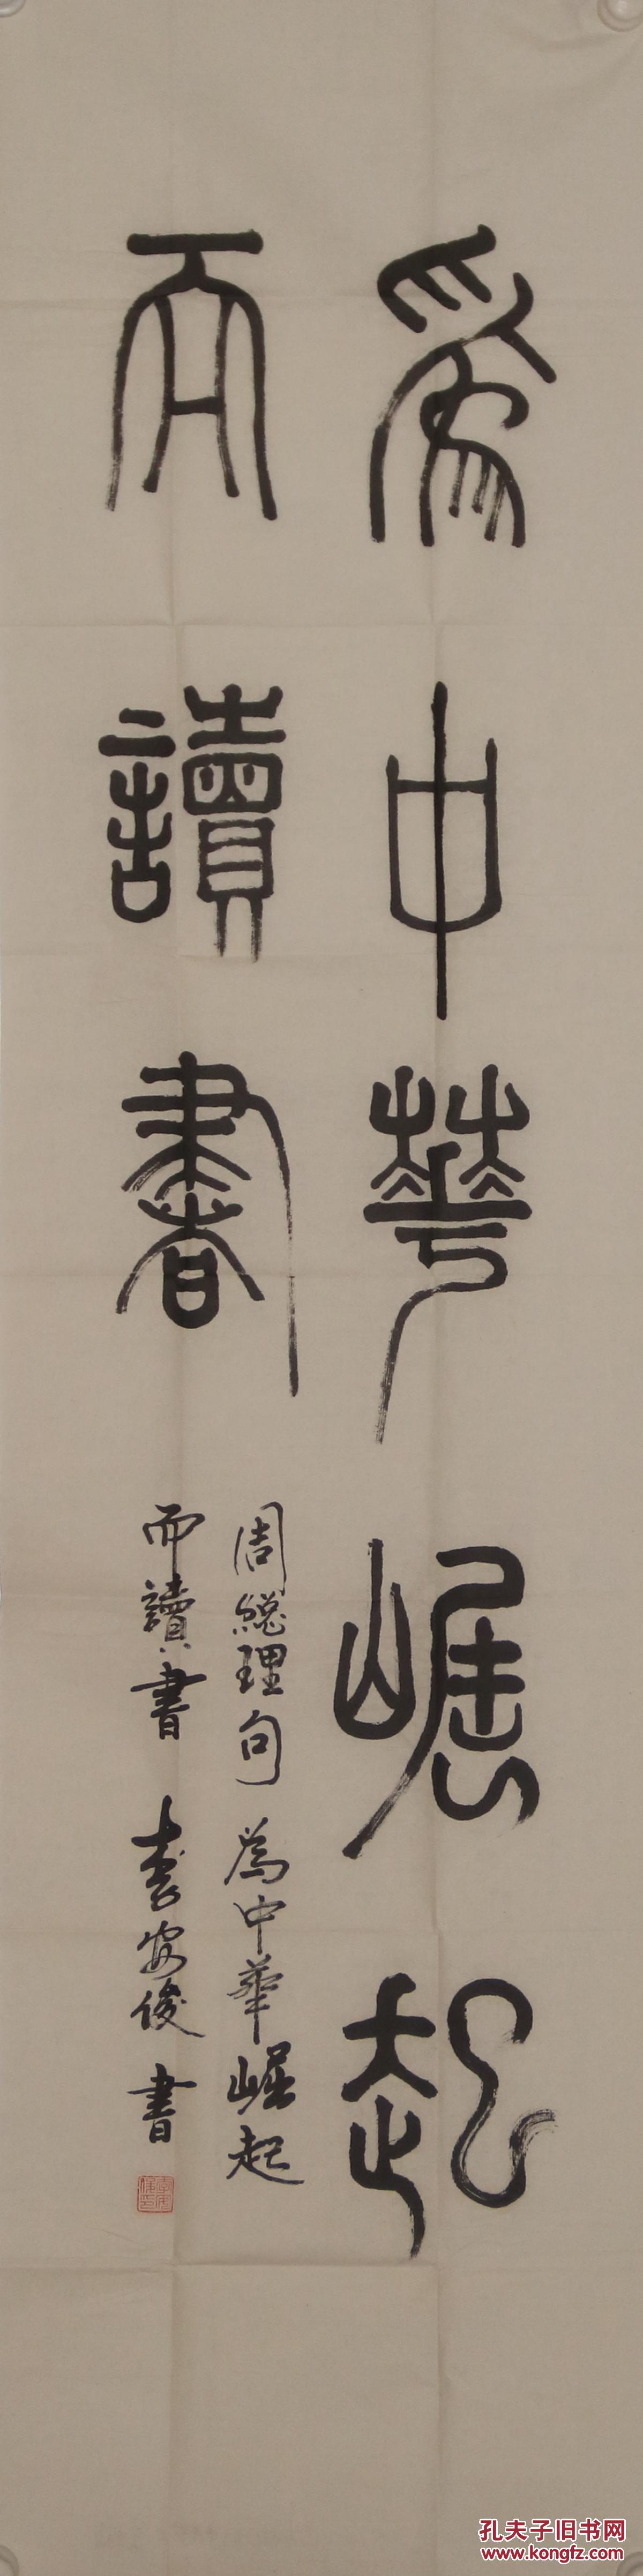 爲中華崛起
而讀書
周總理句 為中華崛起
而讀書 李安俊 書
孔夫子旧书网
www.kongfz.com